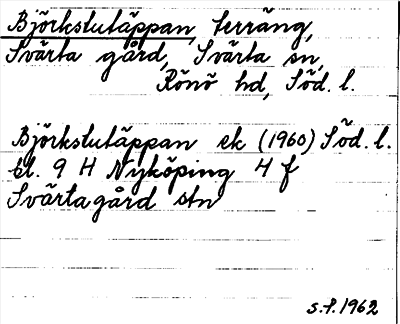 Björkstutäppan, terräng,
Svärta gård, Svärta sn,
Rönö hd, Söd. l.
Björkstutäppan ek (1960) Söd. l.
bl. 9 H Nyköping 4 f
Svärtagård stn
s.f. 1962